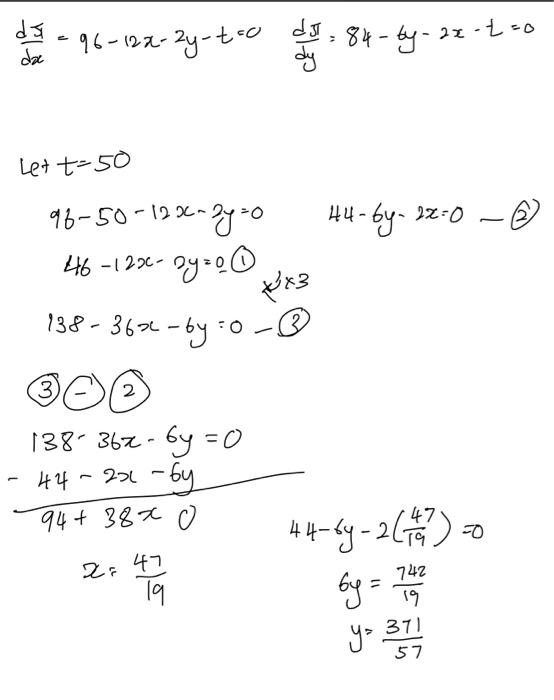 dπ/dx = 96 - 12x - 2y - t = 0    dπ/dy = 84 - 6y - 2x - t = 0
Let t = 50
96 - 50 - 12x - 2y = 0    44 - 6y - 2x = 0 — ②
46 - 12x - 2y = 0 ①
×3
138 - 36x - 6y = 0 — ③
③ - ②
138 - 36x - 6y = 0
- 44 - 2x - 6y
94 + 38x 0
x = 47/19
44 - 6y - 2(47/19) = 0
6y = 742/19
y = 371/57